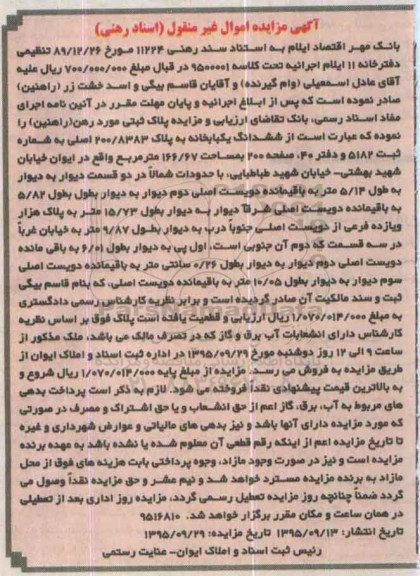 آگهی مزایده اموال غیر منقول (اسناد رهنی)
بانک مهر اقتصاد ایلام به استناد سند رهنی ۱۱۲۲۴ مورخ ۸۹/۱۲/۲۶ تنظیمی
دفترخانه ۱۱ ایلام اجرائیه تحت کلاسه ۹۵۰۰۰۰۱ در قبال مبلغ ۷۰۰/۰۰۰/۰۰۰ ریال علیه
آقای عادل اسمعیلی (وام گیرنده) و آقایان قاسم بیگی و اسد خشت زر (راهنین)
صادر نموده است که پس از ابلاغ اجرائیه و پایان مهلت مقرر در آئین نامه اجرای
مفاد اسناد رسمی، بانک تقاضای ارزیابی و مزایده پلاک ثبتی مورد رهن(راهنین) را
نموده که عبارت است از ششدانگ یکبابخانه به پلاک ۲۰۰/۸۳۸۳ اصلی به شماره
ثبت ۵۱۸۲ و دفتر ۴۰، صفحه ۲۰۰ بمساحت ۱۶۶/۶۷ مترمربع واقع در ایوان خیابان
شهید بهشتی- خیابان شهید طباطبایی، با حدودات شمالاً در دو قسمت دیوار به دیوار
به طول ۵/۱۴ متر به باقیمانده دویست اصلی دوم دیوار به دیوار بطول بطول ۵/۸۲
به باقیمانده دویست اصلی شرقاً دیوار به دیوار بطول ۱۵/۷۳ متر به پلاک هزار
ویازده فرعی از دویست اصلی جنوباً درب به دیوار بطول ۹/۸۷ متر به خیابان غرباً
در سه قسمت که دوم آن جنوبی است. اول پی به دیوار بطول ۶/۰۱ به باقی مانده
دویست اصلی دوم دیوار به دیوار بطول ۰/۲۶ سانتی متر به باقیمانده دویست اصلی
سوم دیوار به دیوار بطول ۱۰/۰۵ متر به باقیمانده دویست اصلی، که بنام قاسم بیگی
ثبت و سند مالکیت آن صادر گردیده است و برابر نظریه کارشناس رسمی دادگستری
به مبلغ ۱/۰۷۰/۰۱۴/۰۰۰ ریال ارزیابی و قطعیت یافته است پلاک فوق بر اساس نظریه
کارشناس دارای انشعابات آب برق و گاز که در تصرف مالک می باشد، ملک مذکور از
ساعت ۹ الی ۱۲ روز دوشنبه مورخ ۱۳۹۵/۰۹/۲۹ در اداره ثبت اسناد و املاک ایوان از
طریق مزایده به فروش می رسد. مزایده از مبلغ پایه ۱/۰۷۰/۰۱۴/۰۰۰ ریال شروع و
به بالاترین قیمت پیشنهادی نقداً فروخته می شود. لازم به ذکر است پرداخت بدهی
های مربوط به آب، برق، گاز اعم از حق انشعاب و یا حق اشتراک و مصرف در صورتی
که مورد مزایده دارای آنها باشد و نیز بدهی های مالیاتی و عوارض شهرداری و غیره
تا تاریخ مزایده اعم از اینکه رقم قطعی آن معلوم شده یا نشده باشد به عهده برنده
مزایده است و نیز در صورت وجود مازاد، وجوه پرداختی بابت هزینه های فوق از محل
مازاد به برنده مزایده مسترد خواهد شد و نیم عشر و حق مزایده نقداً وصول می
گردد ضمناً چنانچه روز مزایده تعطیل رسمی گردد، مزایده روز اداری بعد از تعطیلی
در همان ساعت و مکان مقرر برگزار خواهد شد. ۹۵۱۶۸۱۰
تاریخ انتشار: ۱۳۹۵/۰۹/۱۳ تاریخ مزایده: ۱۳۹۵/۰۹/۲۹
رئیس ثبت اسناد و املاک ایوان- عنایت رستمی